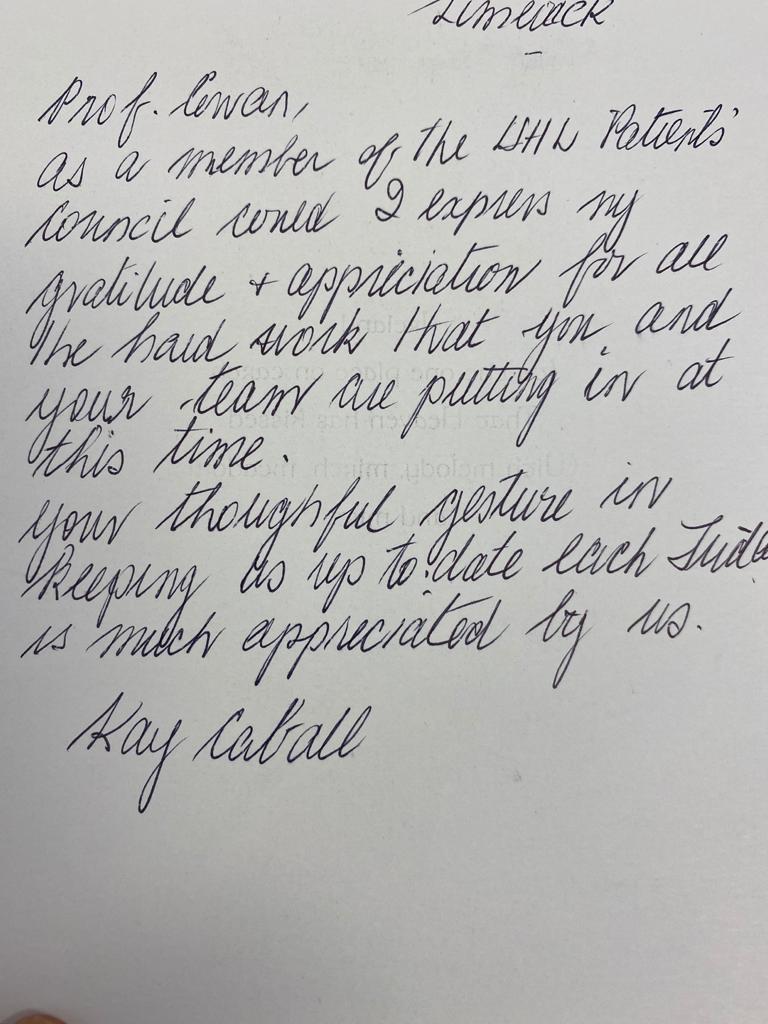 Limerick
Prof. Cowan,
as a member of the UHL Patients'
Council could I express my
gratitude + appreciation for all
the hard work that you and
your team are putting in at
this time.
Your thoughtful gesture in
keeping us up to date each
is much appreciated by us.
Kay Caball